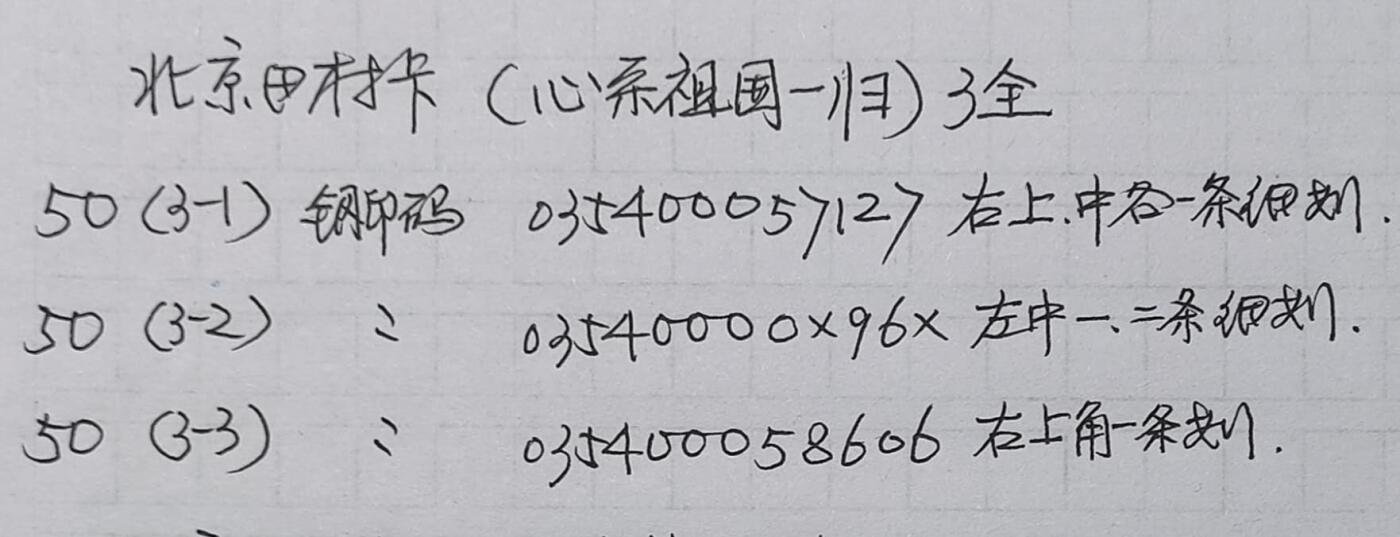 北京田村卡（心系祖国一归）3全
50（3-1）钢印码 035400057127 右上.中各一条细划.
50（3-2） 〃 03540000×96× 左中一、二条细划.
50（3-3） 〃 035400058606 右上角一条划.